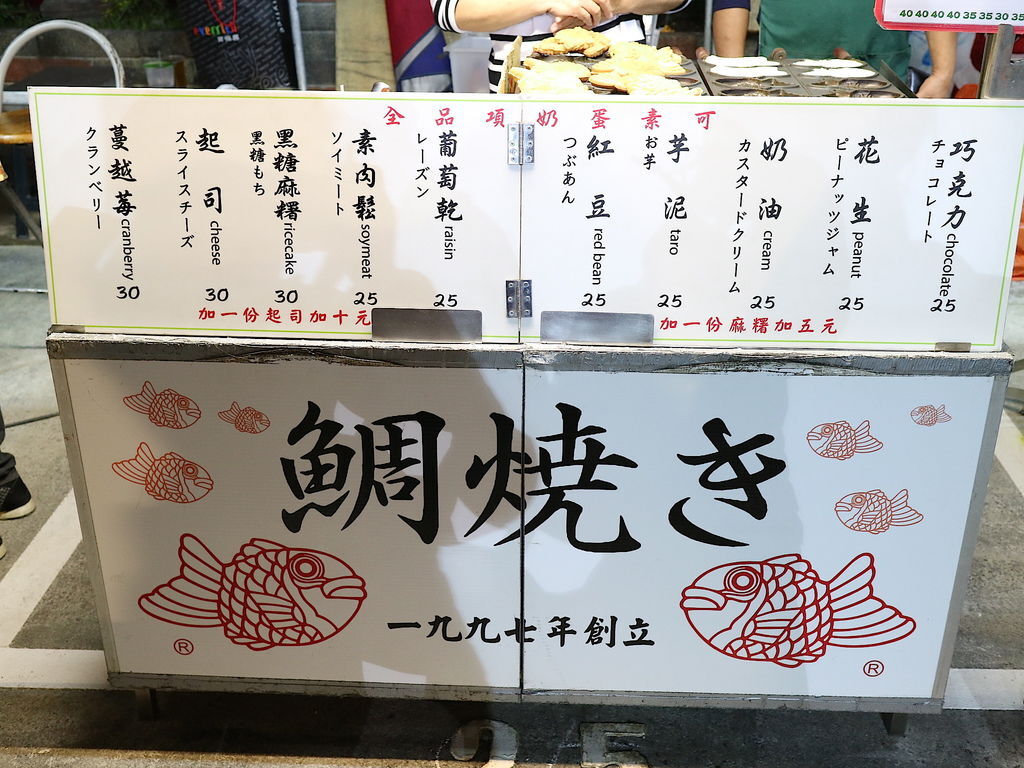 40 40 40 40 35 35 30 35
全品項奶蛋素可
蔓越莓 cranberry 30
クランベリー
起司 cheese 30
スライスチーズ
黑糖麻糬 ricecake 30
黒糖もち
素肉鬆 soymeat 25
ソイミート
葡萄乾 raisin 25
レーズン
紅豆 red bean 25
つぶあん
芋泥 taro 25
お芋
奶油 cream 25
カスタードクリーム
花生 peanut 25
ピーナッツジャム
巧克力 chocolate 25
チョコレート
加一份起司加十元
加一份麻糬加五元
鯛焼き
一九九七年創立
®
®